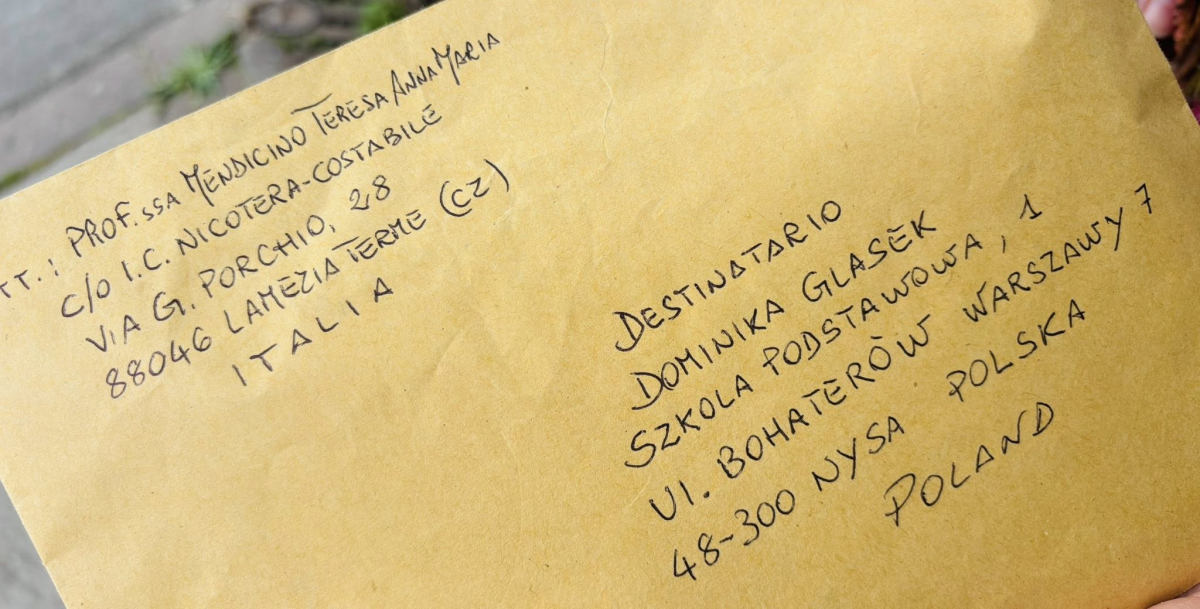 TT.: PROF.SSA MENDICINO TERESA ANNAMARIA
C/O I.C. NICOTERA-COSTABILE
VIA G. PORCHIO, 28
88046 LAMEZIA TERME (CZ)
ITALIA
DESTINATARIO
DOMINIKA GLASEK
SZKOLA PODSTAWOWA, 1
Ul. BOHATERÒW WARSZAWY 7
48-300 NYSA POLSKA
POLAND